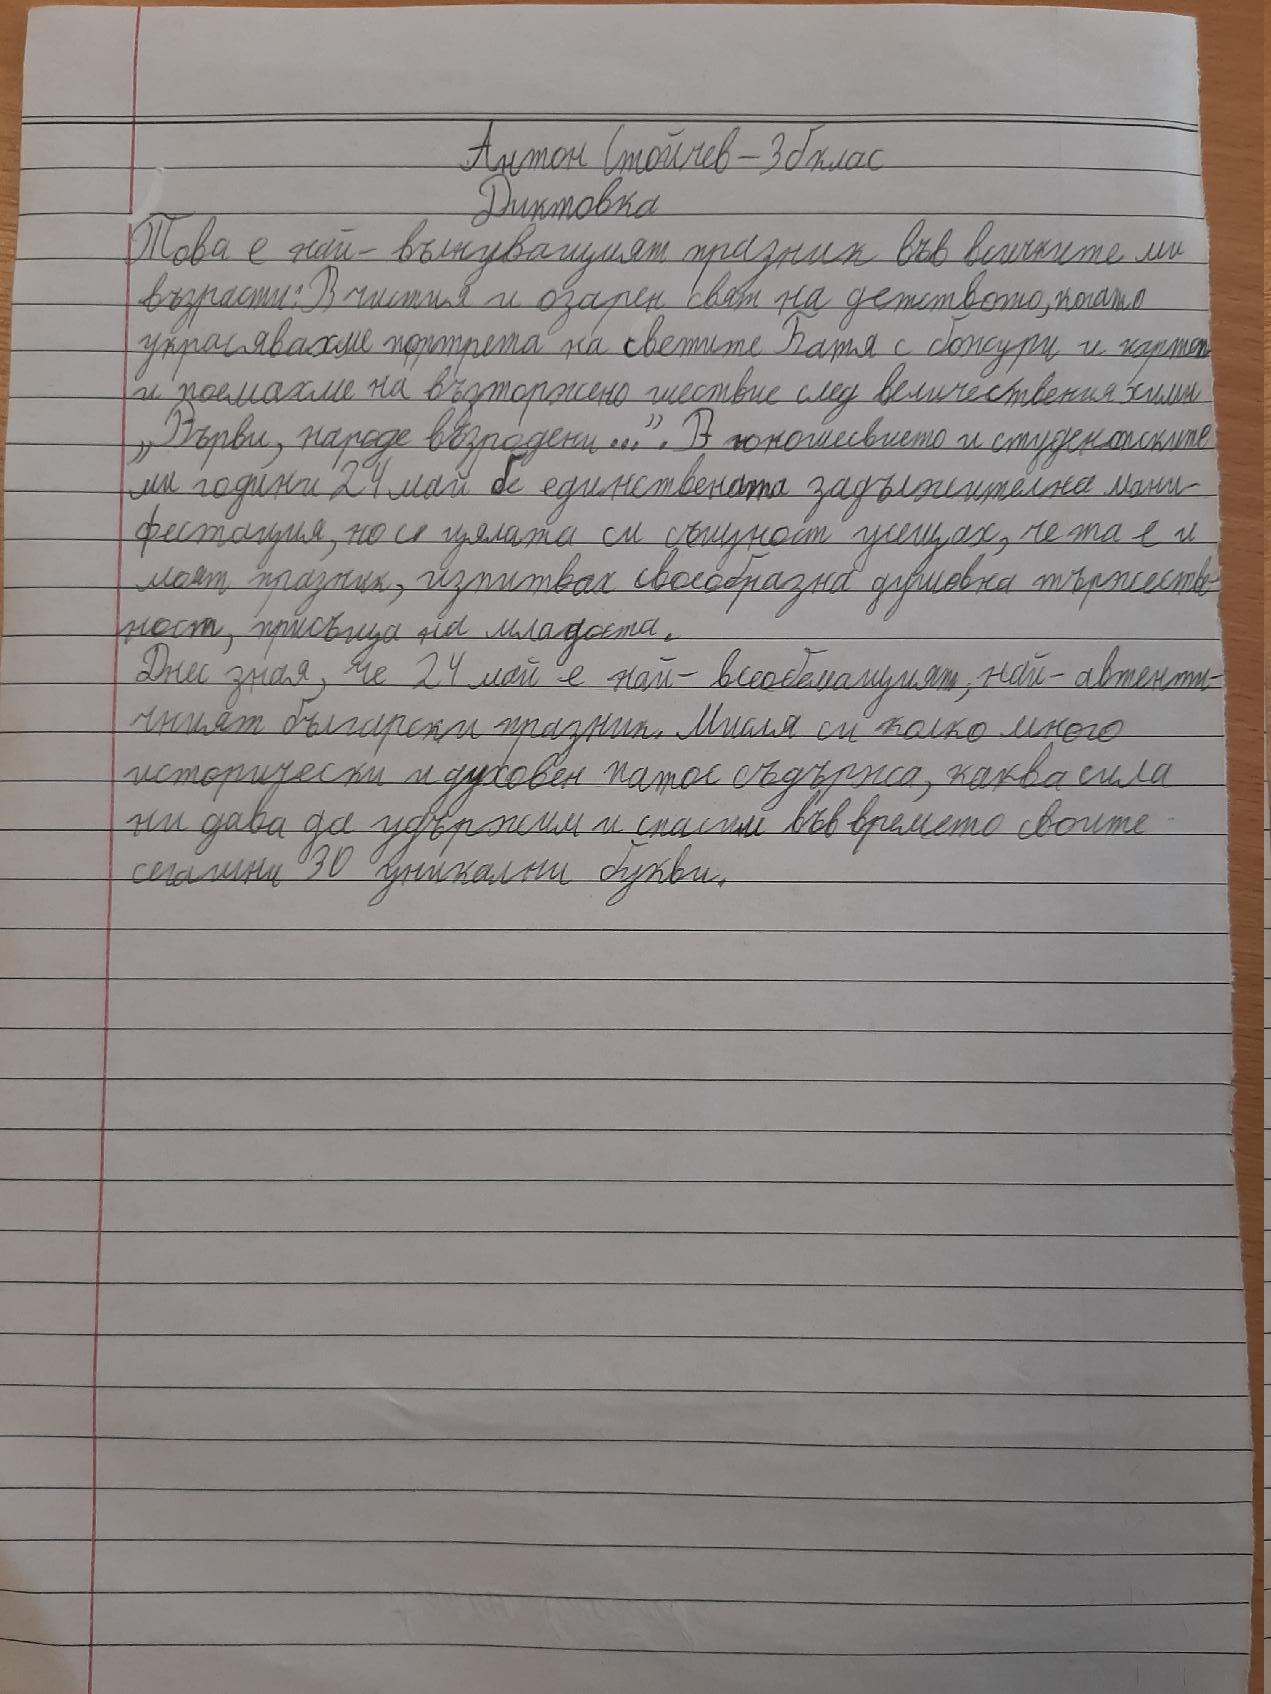 Антон Стойчев – 3б клас
Диктовка
Това е най-вълнуващият празник във всичките ми
възрасти: В чистия и озарен свят на детството, когато
украсявахме портрета на светите Батя с божури и
и поемахме на възторжено шествие след величествения химн
„Върви, народе възродени...". В и студентските
ми години 24 май бе единствената задължителна мани-
фестация, но с цялата си същност усещах, че та е и
моят празник, изпитвах своеобразна душовна тържестве-
ност, присъща на младоста.
Днес зная, че 24 май е най-всеобемащият, най-автенти-
чният български празник. Мисля си колко много
исторически и духовен патос съдържа, каква сила
ни дава да удържим и спасим във времето своите
сегашни 30 уникални букви.